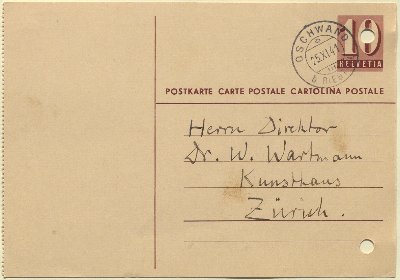 OSCHWAND
25.XI.41
b. RIED
10
HELVETIA
POSTKARTE CARTE POSTALE CARTOLINA POSTALE
Herrn Direktor
Dr. W. Wartmann
Kunsthaus
Zürich.